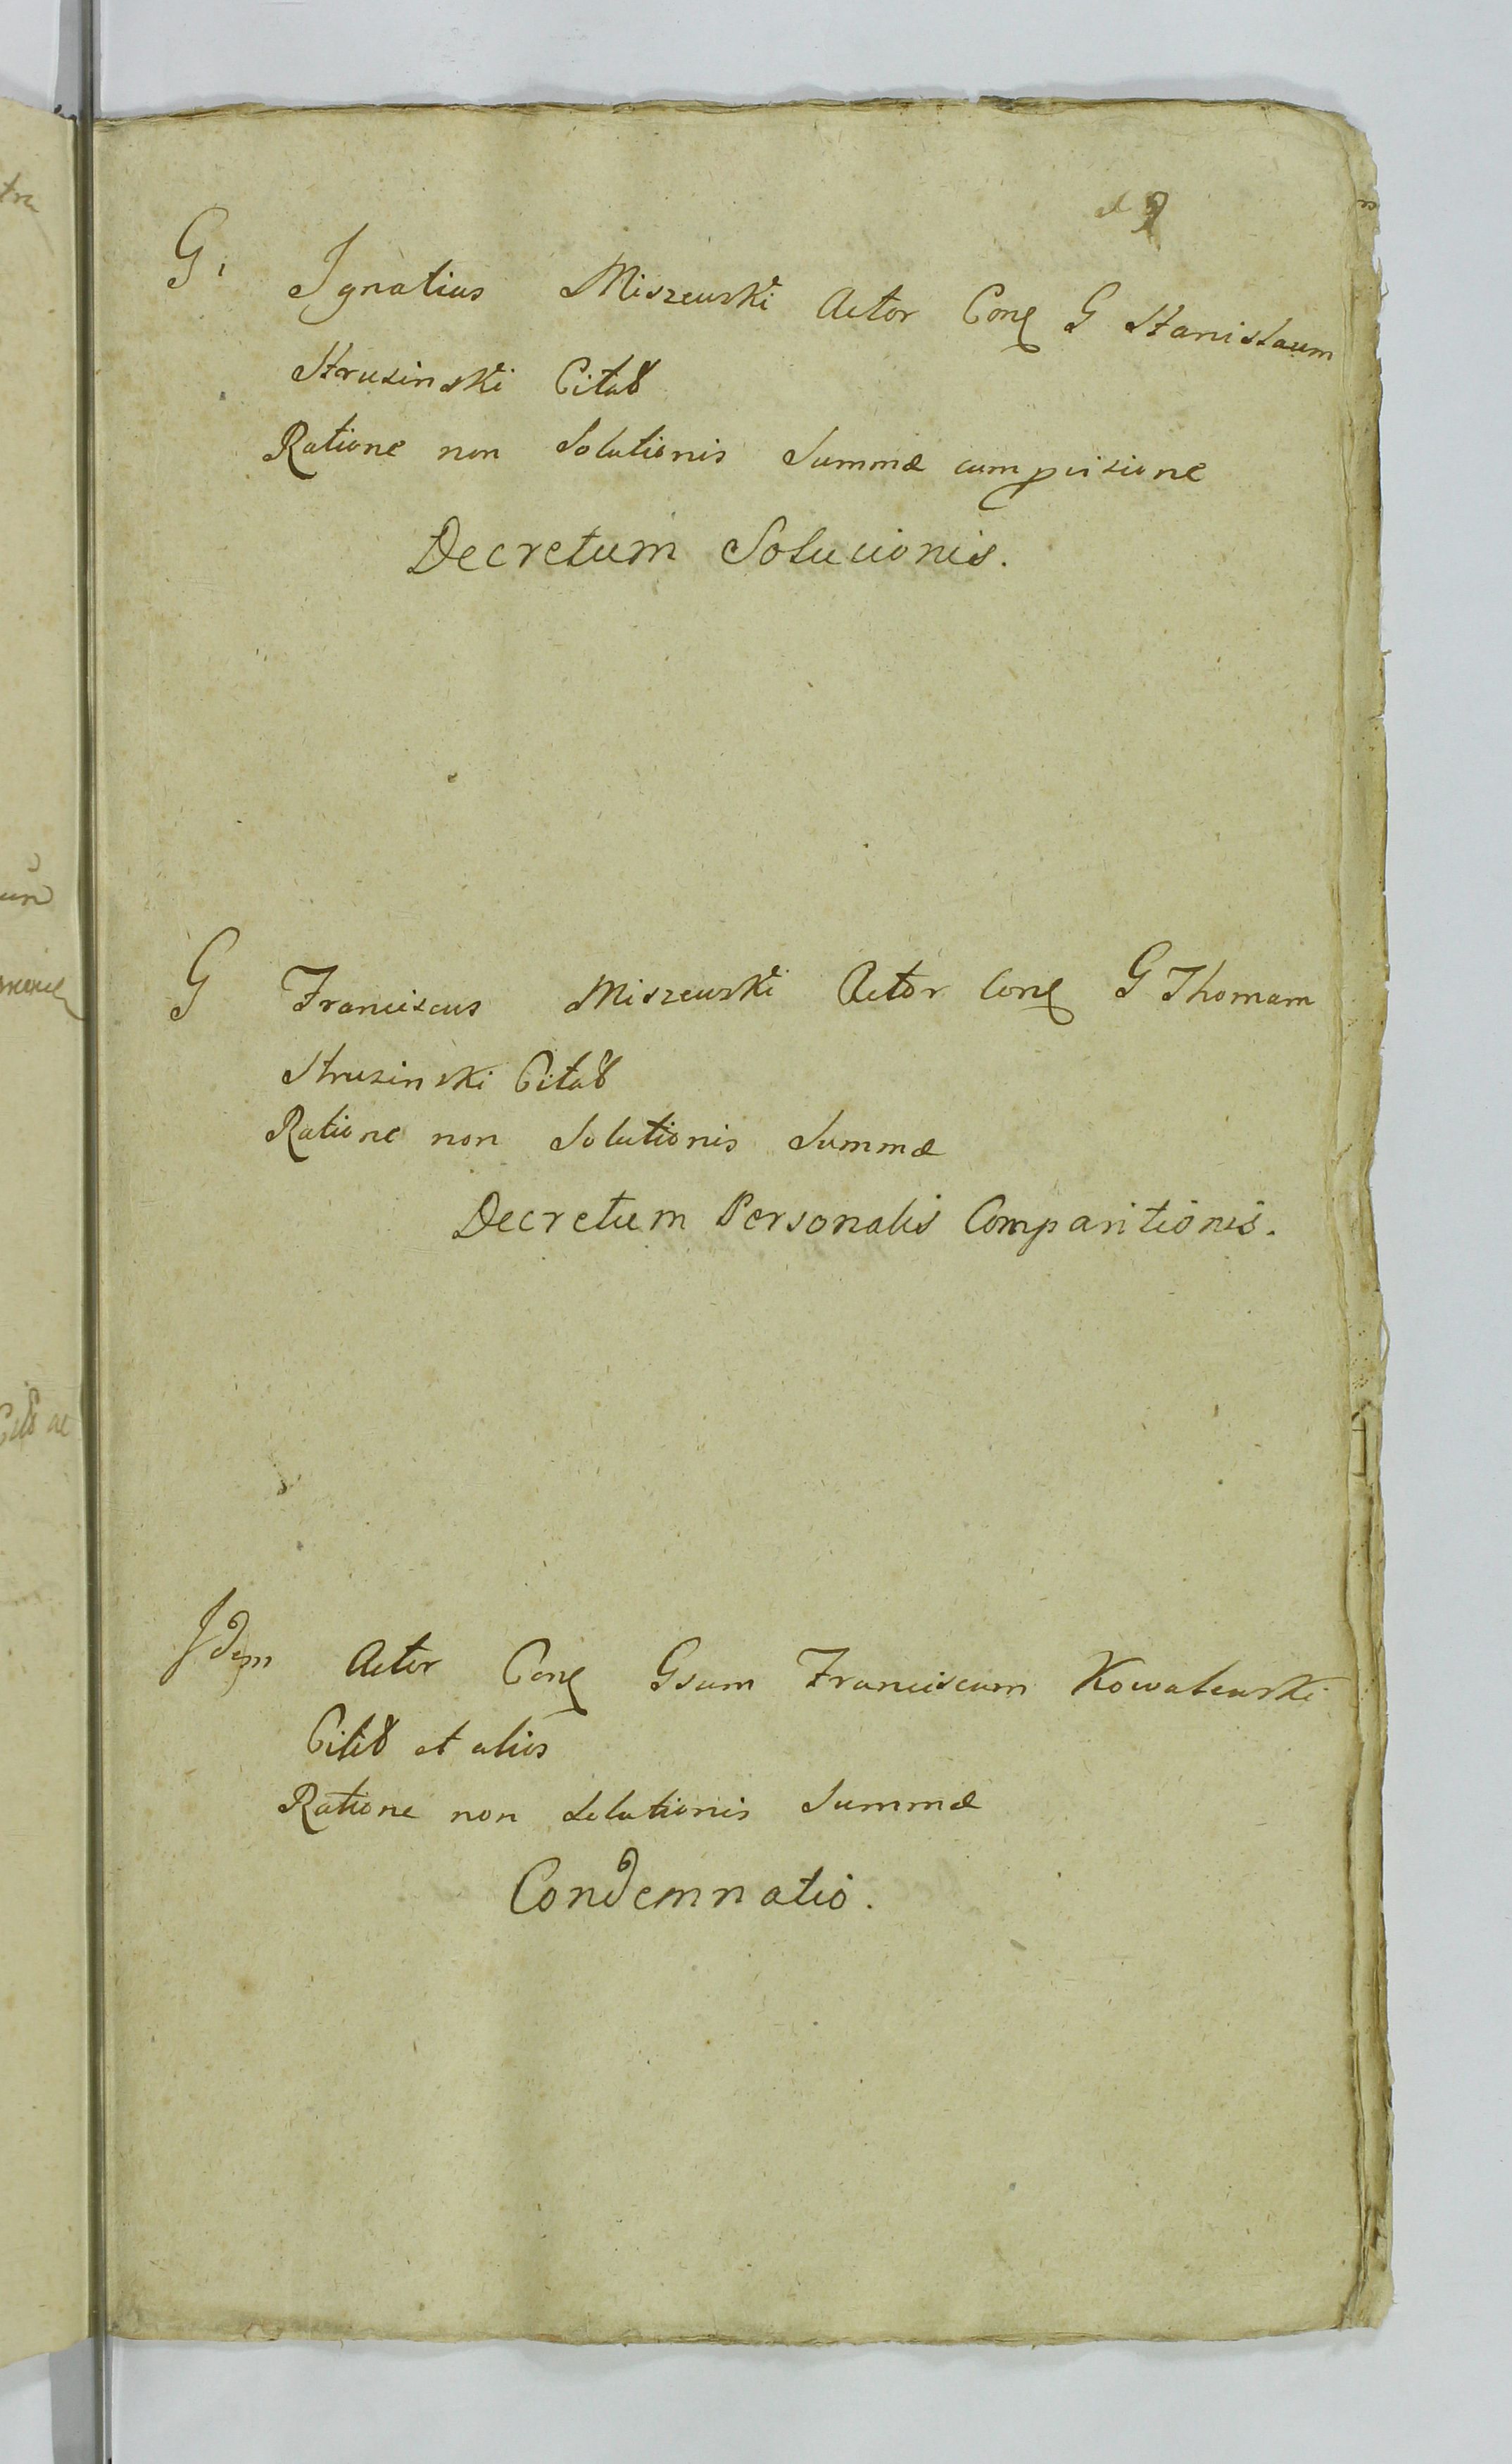 G. Ignatius Miszewski Actor Conq G Stanislaum
Struzinski Citat
Ratione non Solutionis Summæ cum
Decretum Solucionis.
G Franciscus Miszewski Actor Conq G Thomam
Struzinski Citat
Ratione non Solutionis Summæ
Decretum Personalis Comparitionis.
Idem Actor Conq Gsum Franciscum Kowalewski
et alios
Ratione non Solutionis Summæ
Condemnatio.